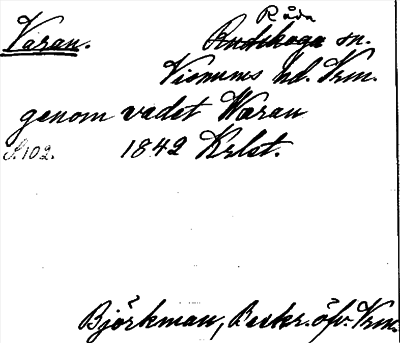 Varan.
Råda
Rudskoga sn.
Visnums hd. Vrm.
genom vadet Waran
S. 102. 1842 Krlst.
Björkman, Beskr. öfv. Vrm.